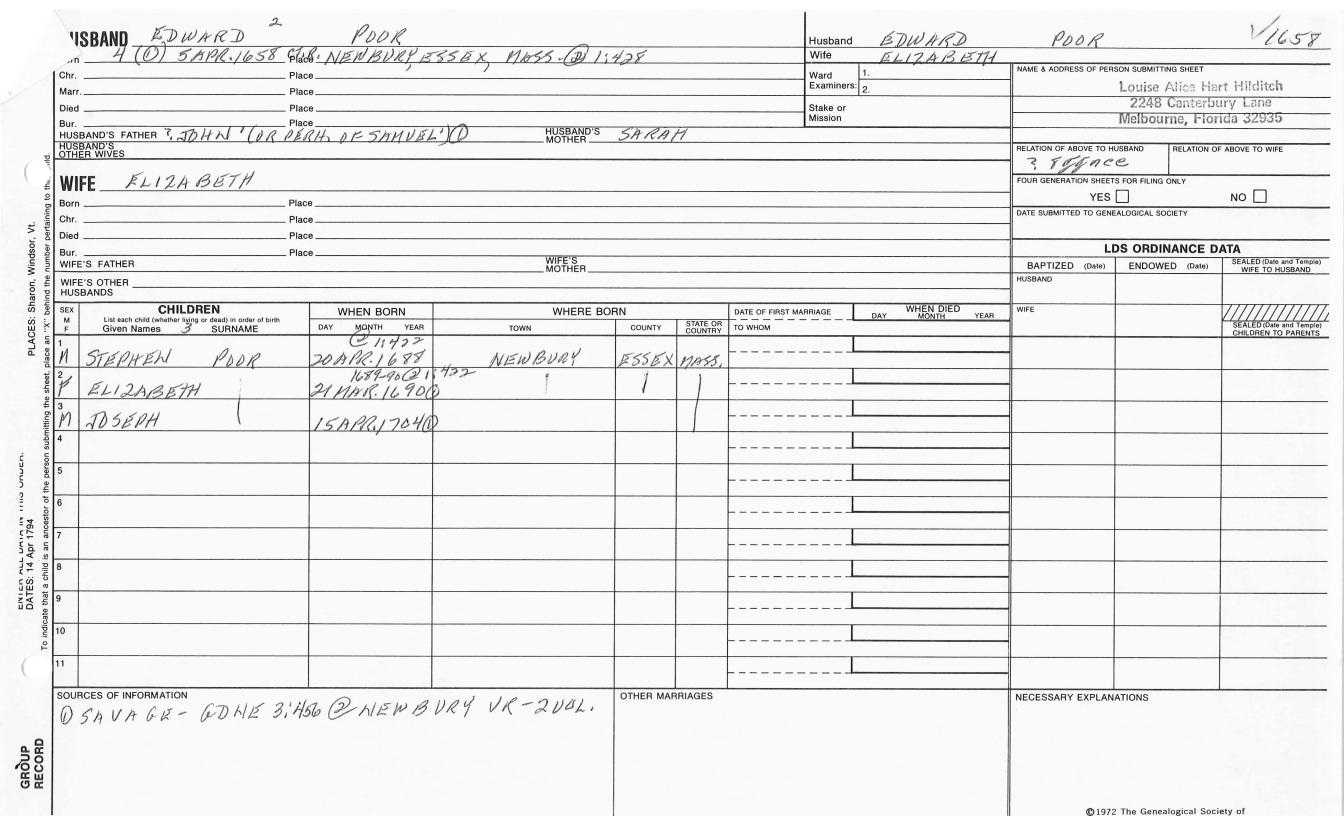 2
USBAND EDWARD POOR
4 (1) 5 APR. 1658 Place NEWBURY, ESSEX, MASS. @ 1:428
Chr. Place
Marr. Place
Died Place
Bur. Place
HUSBAND'S FATHER ? JOHN ' (OR PERH. OF SAMUEL') ① HUSBAND'S MOTHER SARAH
HUSBAND'S OTHER WIVES
Husband EDWARD POOR √1658
Wife ELIZABETH
Ward Examiners: 1.
2.
Stake or Mission
NAME & ADDRESS OF PERSON SUBMITTING SHEET
Louise Alice Hart Hilditch
2248 Canterbury Lane
Melbourne, Florida 32935
RELATION OF ABOVE TO HUSBAND RELATION OF ABOVE TO WIFE
?
FOUR GENERATION SHEETS FOR FILING ONLY
YES NO
DATE SUBMITTED TO GENEALOGICAL SOCIETY
WIFE ELIZABETH
Born Place
Chr. Place
Died Place
Bur. Place
WIFE'S FATHER WIFE'S MOTHER
WIFE'S OTHER HUSBANDS
LDS ORDINANCE DATA
BAPTIZED (Date) ENDOWED (Date) SEALED (Date and Temple) WIFE TO HUSBAND
HUSBAND
WIFE
SEALED (Date and Temple) CHILDREN TO PARENTS
SEX M F
CHILDREN
List each child (whether living or dead) in order of birth
Given Names 3 SURNAME
WHEN BORN
DAY MONTH YEAR
WHERE BORN
TOWN COUNTY STATE OR COUNTRY
DATE OF FIRST MARRIAGE
TO WHOM
WHEN DIED
DAY MONTH YEAR
@ 1:422
1 M STEPHEN POOR 20 APR. 1688 NEWBURY ESSEX MASS.
1689-90 @ 1:422
2 F ELIZABETH 21 MAR. 1690 ①
3 M JOSEPH 15 APR. 1704 ①
4
5
6
7
8
9
10
11
SOURCES OF INFORMATION
① SAVAGE - GDNE 3:456 ② NEWBURY VR - 2 VOL.
OTHER MARRIAGES
NECESSARY EXPLANATIONS
©1972 The Genealogical Society of
PLACES: Sharon, Windsor, Vt.
ENTER ALL DATA IN THIS ORDER:
DATES: 14 Apr 1794
To indicate that a child is an ancestor of the person submitting the sheet, place an "X" behind the number pertaining to
GROUP RECORD